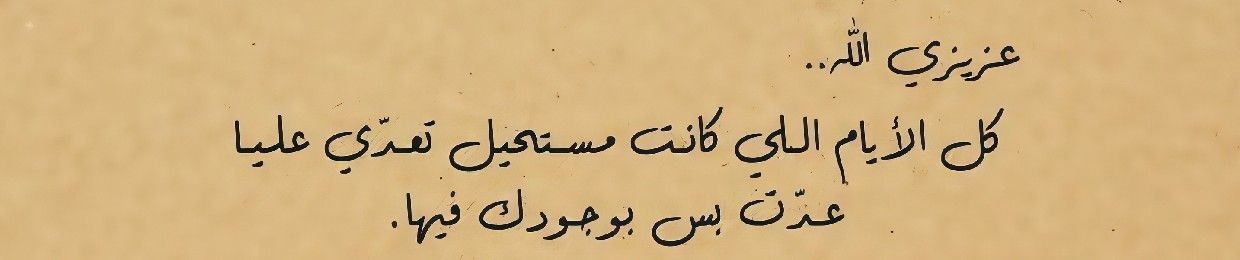 عزيزي الله..
كل الأيام اللي كانت مستحيل تعدّي عليا
عدّت بس بوجودك فيها.